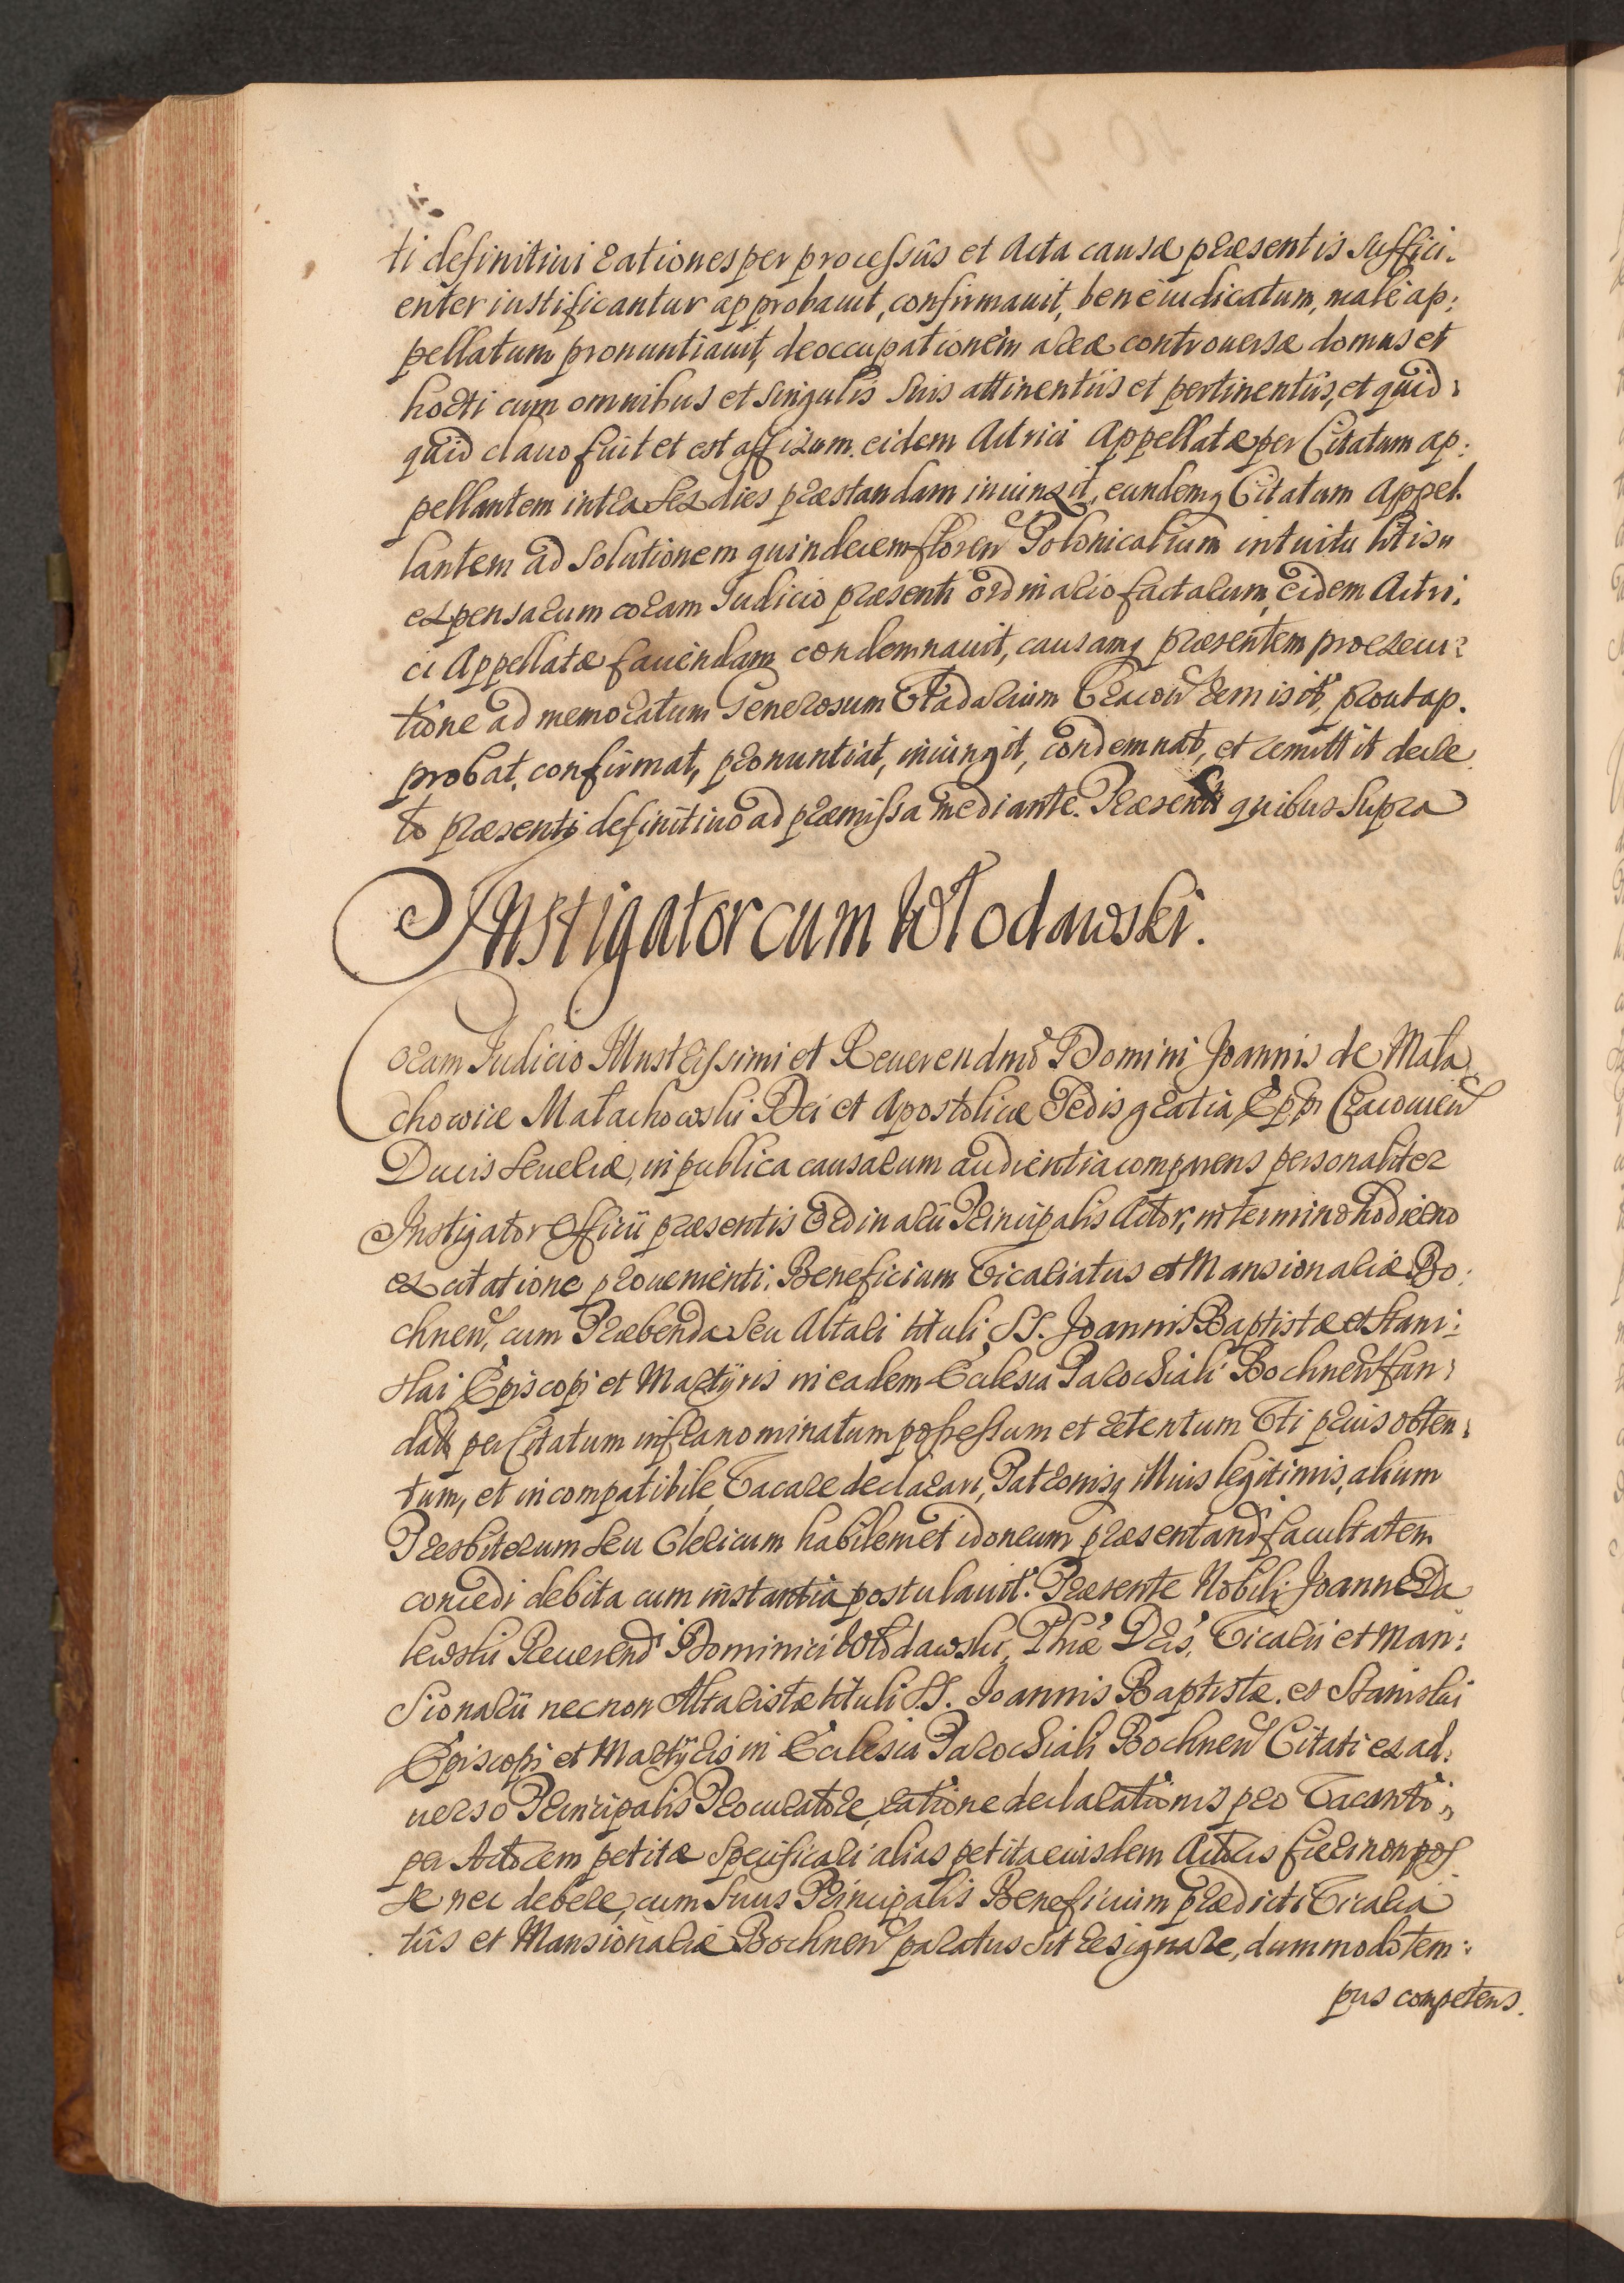 ti definitiui rationes per processûs et Acta causæ præsentis suffici:
enter iustificantur approbauit, confirmauit, bene iudicatum, malè ap:
pellatum pronuntiauit, deoccupationem areæ controuersæ domus et
horti cum omnibus et singulis suis attinentiis et pertinentiis, et quid:
quid clauo fuit et est affixum. eidem Actrici Appellatæ per Citatum ap:
pellantem intra sex dies præstandam iniunxit, eundemq Citatum Appel:
lantem ad solutionem quindecem floren Polonicalium intuitu litis
expensarum coram Iudicio præsenti ordinario factarum, eidem Actri:
ci Appellatæ faciendam condemnauit, causamq præsentem pro execu:
tione ad memoratum Generosum Vladarium Cracouien remisit, prout ap:
probat, confirmat, pronuntiat, iniungit, condemnat, et remittit decre
to præsenti definitiuo ad præmissa mediante. Præsentib quibus supra
Instigator cum Włodawski.
Coram Iudicio Illustrissimi et Reuerendmi Domini Joannis de Mała
chowice Małachowski Dei et Apostolicæ Sedis gratia Eppi Cracouien
Ducis Seueriæ, in publica causarum audientia comparens personaliter
Instigator Officii præsentis Ordinarii Principalis Actor, in termino hodierno
ex citatione prouenienti. Beneficium Vicariatus et Mansionariæ Bo:
chnen, cum Præbenda seu Altari tituli SS. Joannis Baptistæ et Stani:
slai Episcopi et Martyris in eadem Ecclesia Parochiali Bochnen fun:
dat per Citatum infranominatum possessum et retentum Vti prius obten:
tum, et incompatibile, Vacare declarari, Patronisq illius legitimis, alium
Presbiterum seu Clericum habilem et idoneum præsentandi facultatem
concedi debita cum instantia postulauit. Præsente Nobili Joanne Da
lewski Reuerendi Dominici Włodawski, Phiæ Dris, Vicarii et Man:
sionarii necnon Altaristæ tituli SS. Joannis Baptistæ et Stanislai
Episcopi et Martyris in Ecclesia Parochiali Bochnen Citati ex ad:
uerso Principalis Procuratore, ratione declarationis pro Vacanti
per Actorem petitæ specificari alias petita eiusdem Actoris fieri non pos
se nec debere, cum suus Principalis Beneficium prædicti Vicaria
tûs et Mansionariæ Bochnen paratus sit resignare, dummodo tem:
pus competens.